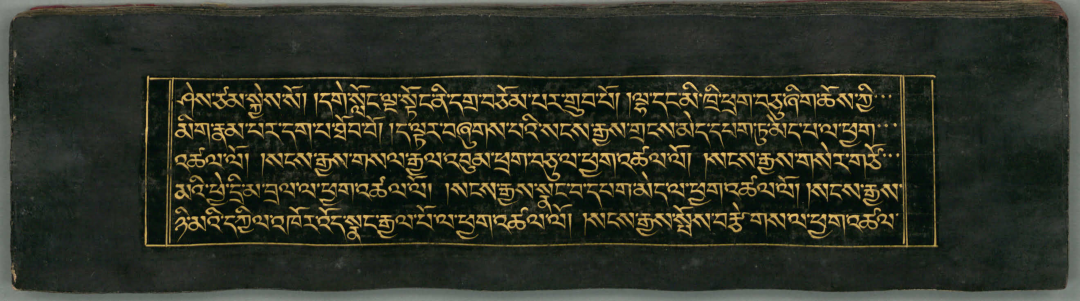 ཤེས་ཙམ་སྐྱེས་སོ། །དགེ་སློང་ལྔ་སྟོང་ནི་དགྲ་བཅོམ་པར་གྲུབ་བོ། །ལྷ་དང་མི་ཁྲི་ཕྲག་བཅུ་ཞིག་ཆོས་ཀྱི་
མིག་རྣམ་པར་དག་པ་ཐོབ་བོ། །ད་ལྟར་བཞུགས་པའི་སངས་རྒྱས་གྲངས་མེད་དཔག་ཏུ་མེད་པ་ལ་ཕྱག་
འཚལ་ལོ། །སངས་རྒྱས་གསལ་རྒྱལ་འབུམ་ཕྲག་བཅུ་ལ་ཕྱག་འཚལ་ལོ། །སངས་རྒྱས་གསེར་གཙོ་
མའི་ཕྱེ་དྲི་མ་བྲལ་ལ་ཕྱག་འཚལ་ལོ། །སངས་རྒྱས་སྣང་བ་དཔག་མེད་ལ་ཕྱག་འཚལ་ལོ། །སངས་རྒྱས་
ཉི་མའི་དཀྱིལ་འཁོར་འོད་སྣང་རྒྱལ་པོ་ལ་ཕྱག་འཚལ་ལོ། །སངས་རྒྱས་སྤོས་བརྩེ་གས་ལ་ཕྱག་འཚལ་